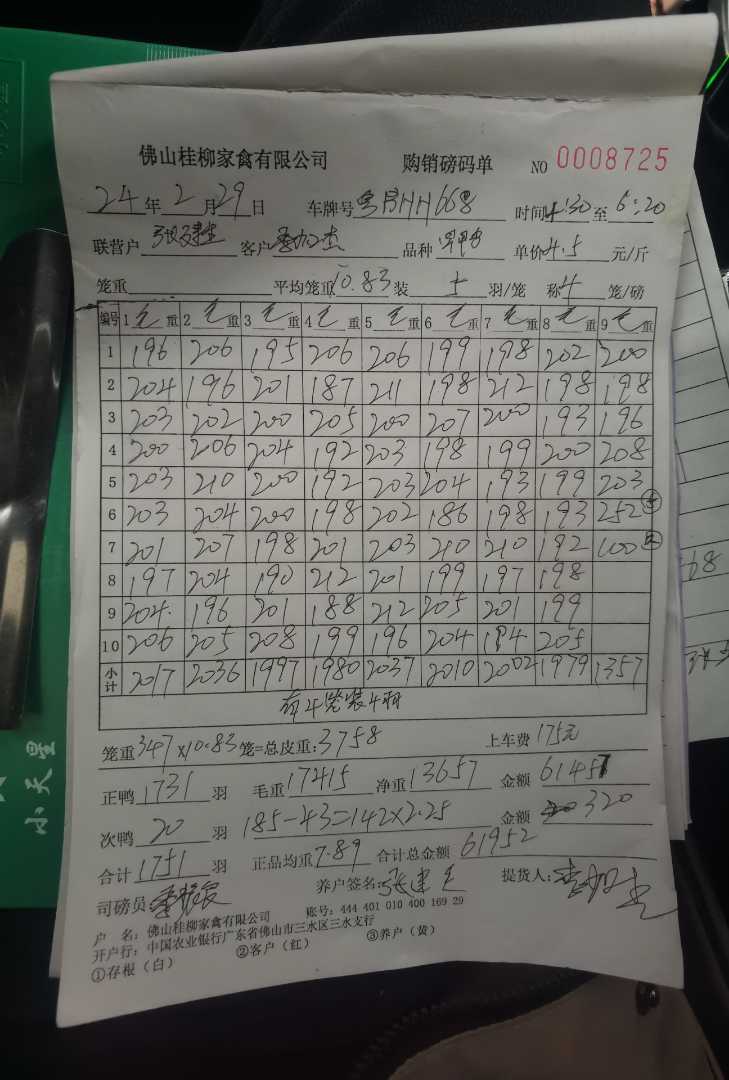 佛山桂柳家禽有限公司 购销磅码单 NO 0008725
24年2月29日 车牌号 HH668 时间4:30至6:20
联营户 客户 品种 单价4.5元/斤
笼重 平均笼重10.83装5羽/笼 称4笼/磅
编号 1毛重 2毛重 3毛重 4毛重 5毛重 6毛重 7毛重 8毛重 9毛重
1 196 206 195 206 206 199 198 202 200
2 204 196 201 187 211 198 212 198 198
3 203 202 200 205 200 207 200 193 196
4 200 206 204 192 203 198 199 200 208
5 203 210 200 192 203 204 193 199 203
6 203 204 200 198 202 186 198 193 252
7 201 207 198 201 203 210 210 192 100
8 197 204 190 212 201 199 197 198
9 204 196 201 188 212 205 201 199
10 206 205 208 199 196 204 194 205
小计 2017 2036 1997 1980 2037 2010 2002 1979 1357
有4笼装4羽
笼重347×10.83笼=总皮重:3758 上车费175元
正鸭1731羽 毛重17415 净重13657 金额61457
次鸭20羽 185-43=142×2.25 金额320
合计1751羽 正品均重7.89 合计总金额61952
司磅员: 养户签名: 张建 提货人:
户 名:佛山桂柳家禽有限公司 账号:444 401 010 400 169 29
开户行:中国农业银行广东省佛山市三水区三水支行
①存根(白) ②客户(红) ③养户(黄)
小天星
68